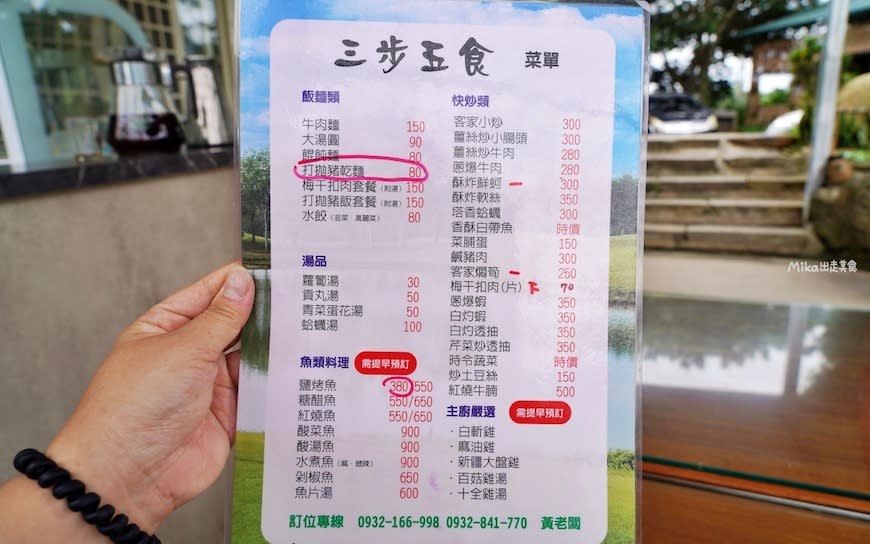 三步五食 菜單
飯麵類
牛肉麵 150
大湯圓 90
餛飩麵 80
打拋豬乾麵 80
梅干扣肉套餐(附湯) 150
打拋豬飯套餐(附湯) 150
水餃(韮菜、高麗菜) 80
湯品
蘿蔔湯 30
貢丸湯 50
青菜蛋花湯 50
蛤蠣湯 100
魚類料理 需提早預訂
鹽烤魚 380/550
糖醋魚 550/650
紅燒魚 550/650
酸菜魚 900
酸湯魚 900
水煮魚(麻、微辣) 900
剁椒魚 650
魚片湯 600
快炒類
客家小炒 300
薑絲炒小腸頭 300
薑絲炒牛肉 280
蔥爆牛肉 280
酥炸鮮蚵 300
酥炸軟絲 350
塔香蛤蠣 300
香酥白帶魚 時價
菜脯蛋 150
鹹豬肉 300
客家燜筍 250
梅干扣肉(片) 70
蔥爆蝦 350
白灼蝦 350
白灼透抽 350
芹菜炒透抽 350
時令蔬菜 時價
炒土豆絲 150
紅燒牛腩 500
主廚嚴選 需提早預訂
·白斬雞
·麻油雞
·新疆大盤雞
·百菇雞湯
·十全雞湯
訂位專線 0932-166-998 0932-841-770 黃老闆
Mika出走美食